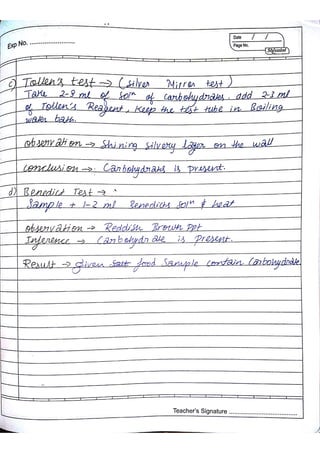 Exp No.
Date / /
Page No.
c) Tollen's test → (Silver Mirror test)
Take 2-3 ml of soln of carbohydrates, add 2-3 ml
of Tollen's Reagent, Keep the test tube in Boiling
water bath.
observation → Shining silvery layer on the wall
conclusion → Carbohydrate is present.
d) Benedict Test →
Sample + 1-2 ml Benedicts soln & heat
observation → Reddish Brown ppt
Inference → Carbohydrate is present.
Result → given food Sample contain Carbohydrate.
Teacher's Signature